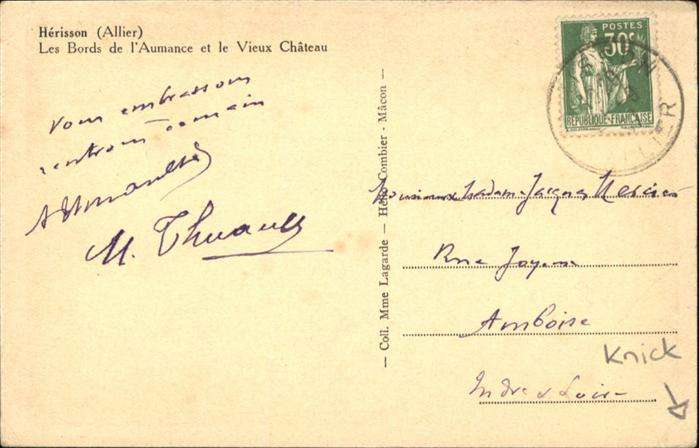 Hérisson (Allier)
Les Bords de l'Aumance et le Vieux Château
Vous embrassons
rentrons demain
M. Thuault
— Coll. Mme Lagarde — Hélio Combier - Mâcon —
POSTES
30c
REPUBLIQUE FRANÇAISE
ALLIER
Monsieur Madame Jacques Mercier
Rue Joyeuse
Amboise
Indre & Loire
Knick